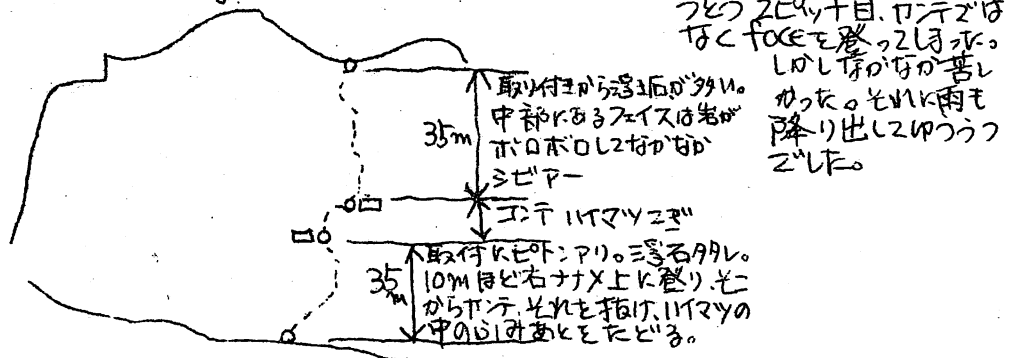 つとつ 2ピッチ目、カンテでは
なく faceを登ってしまった。
しかしなかなか苦し
かった。それに雨も
降り出してゆううつ
でした。
35m
取り付きから浮き石が多い。
中部にあるフェイスは岩が
ボロボロしてなかなか
シビアー
コンテ ハイマツこぎ
35m
取付にピトンアリ。浮石タタし。
10mほど右ナナメ上に登り、そこ
からカンテ、それを抜け、ハイマツの
中のふみあとをたどる。